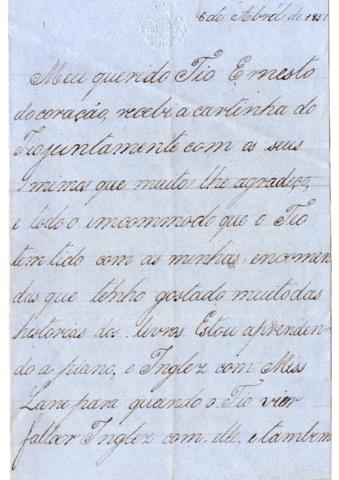 6 de Abril de 1881
Meu querido Tio Ernesto
do coração, recebi a cartinha do
Tio juntamente com as seus
mimos que muito lhe agradeço,
e todo o imcommodo que o Tio
tem tido com as minhas encomen
das que tenho gostado muito das
historias dos livros. Estou aprenden
do a piano, e Inglez com Miss
Lane para quando o Tio vier
fallar Inglez com elle, e tambem